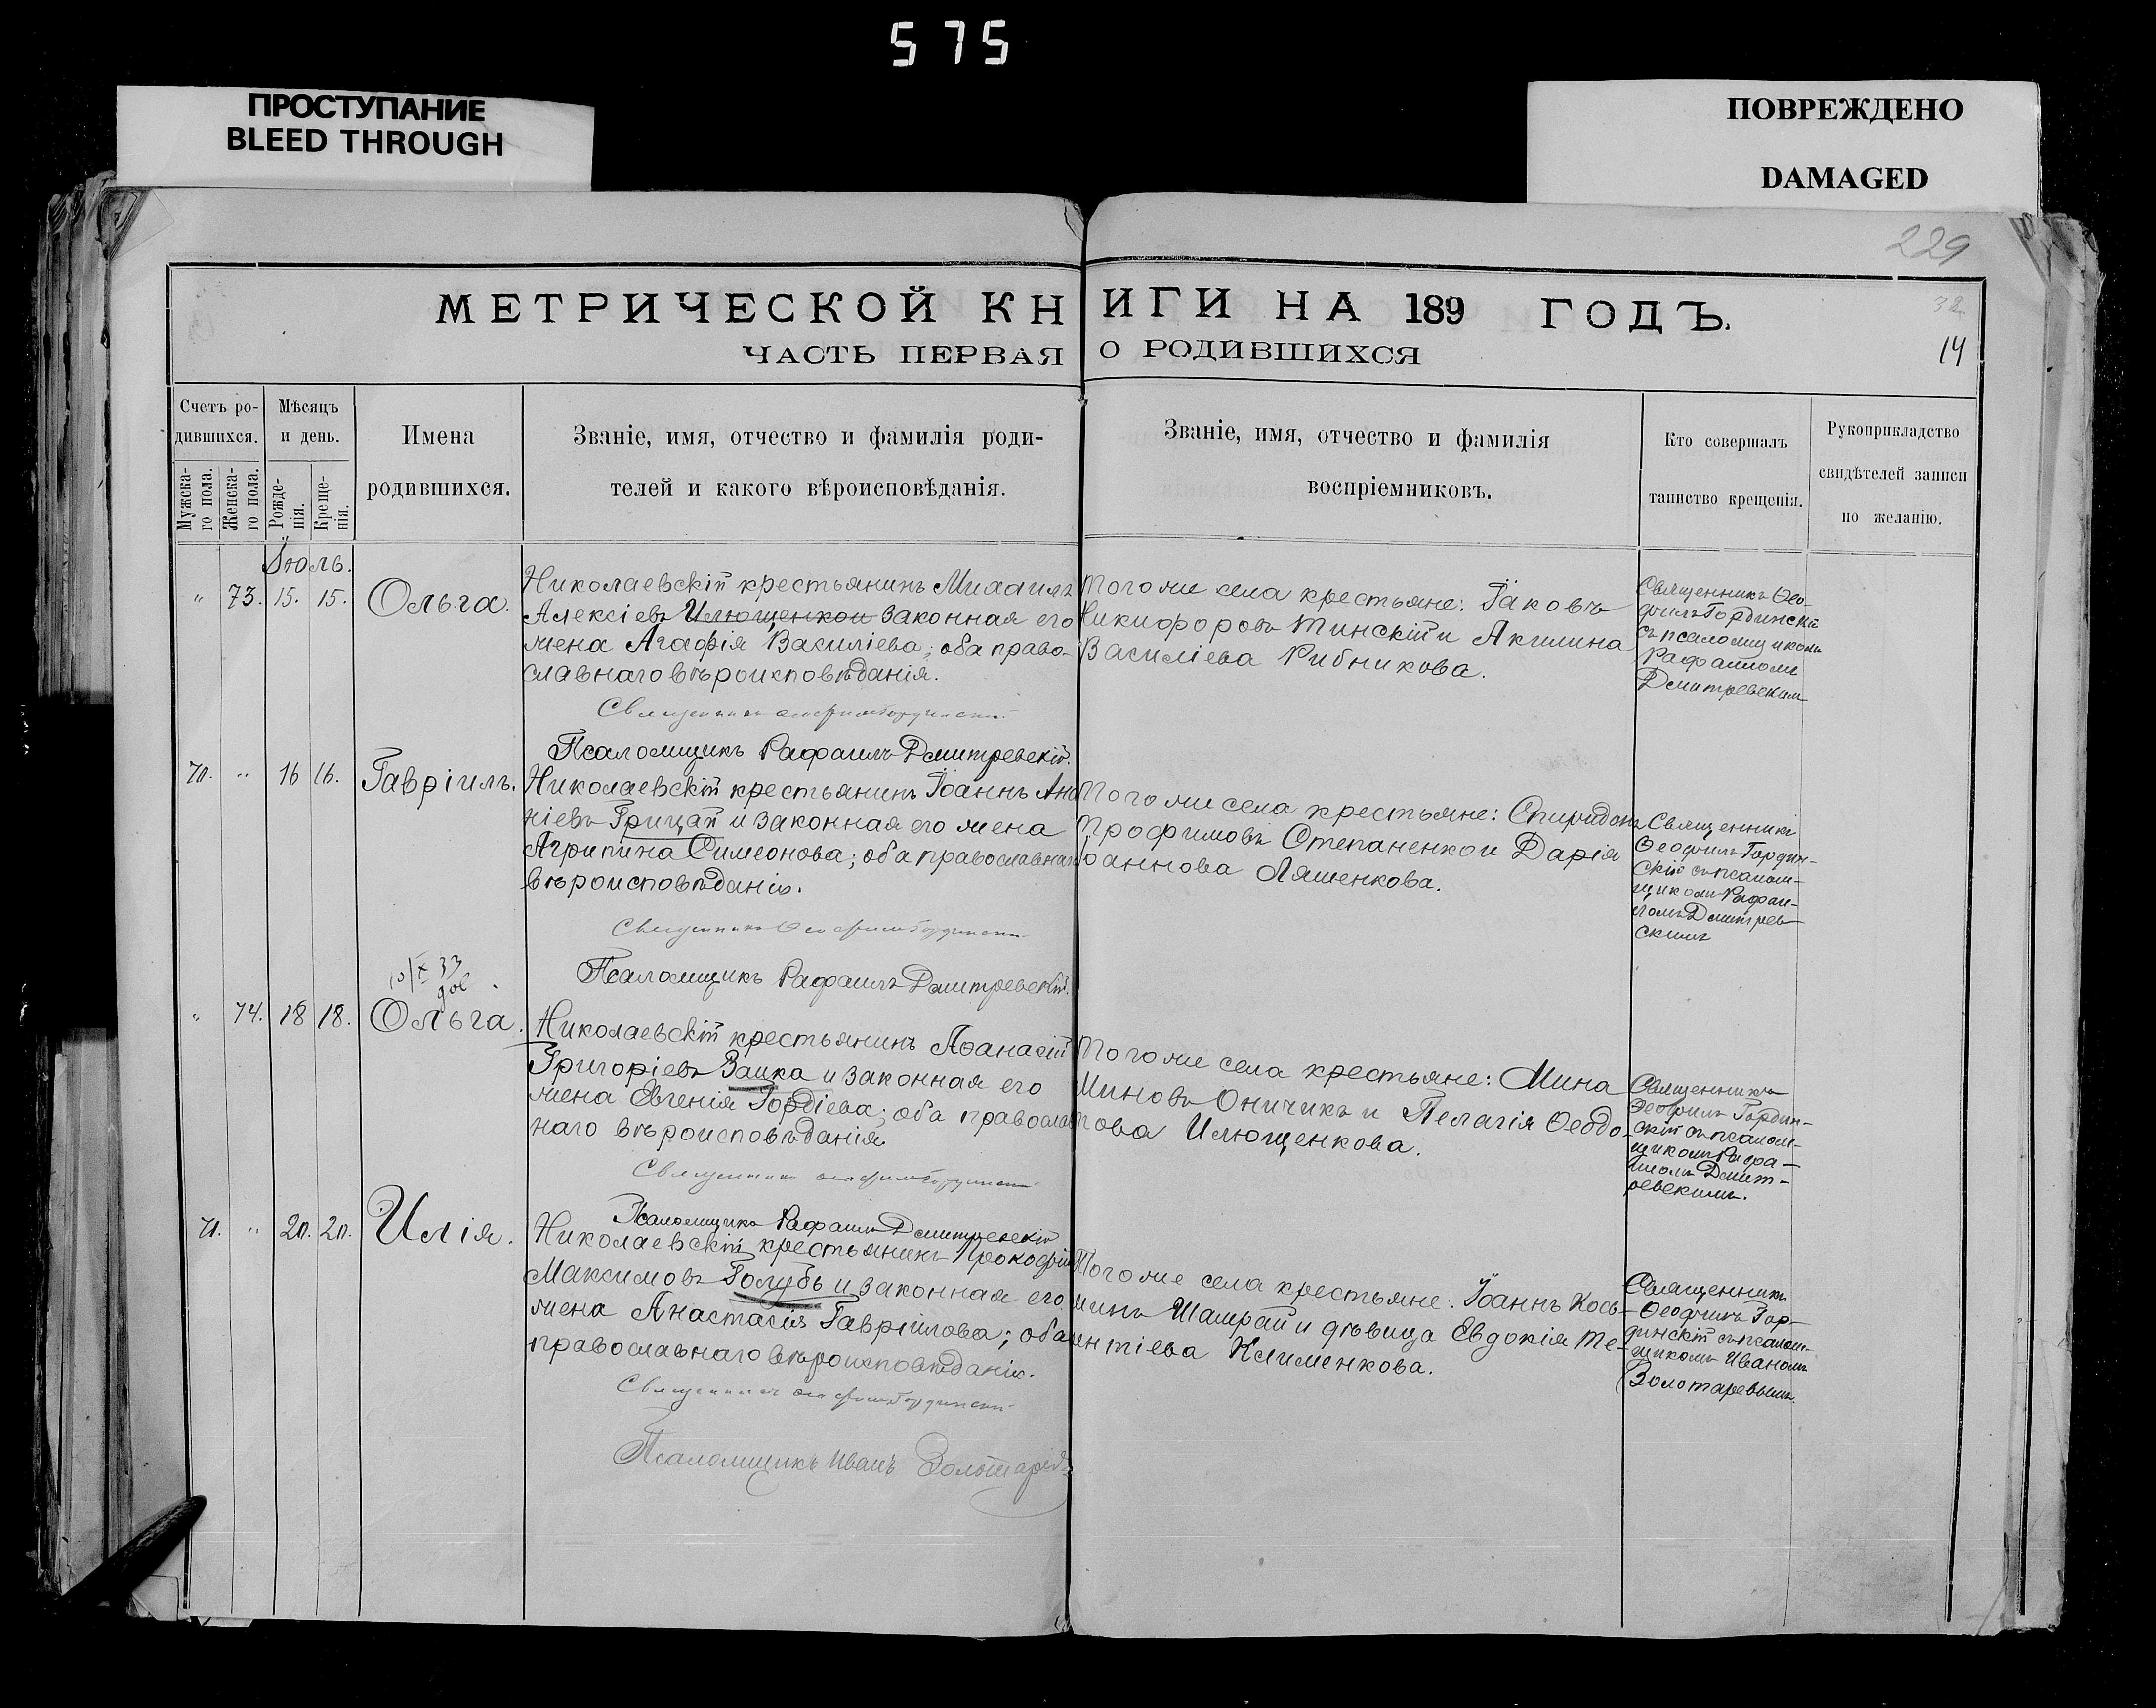 575
ПРОСТУПАНИЕ
BLEED THROUGH
ПОВРЕЖДЕНО
DAMAGED
229
32
14
МЕТРИЧЕСКОЙ КНИГИ НА 189 ГОДЪ.
ЧАСТЬ ПЕРВАЯ О РОДИВШИХСЯ
Счетъ ро-
дившихся.
Мужска-
го пола.
Женска-
го пола.
Мѣсяцъ
и день.
Рожде-
нія.
Креще-
нія.
Имена
родившихся.
Званіе, имя, отчество и фамилія роди-
телей и какого вѣроисповѣданія.
Званіе, имя, отчество и фамилія
воспріемниковъ.
Кто совершалъ
таинство крещенія.
Рукоприкладство
свидѣтелей записи
по желанію.
Іюль.
" 73. 15. 15. Ольга.
Николаевскій крестьянинъ Михаилъ
Алексіевъ Илющенко и законная его
жена Агафія Василіева; оба право-
славнаго вѣроисповѣданія.
Священникъ Ѳеофилъ Гординскій
Псаломщикъ Рафаилъ Дмитревскій.
Того же села крестьяне: Іаковъ
Никифоровъ Тинскій и Акилина
Василіева Рибникова.
Священникъ Ѳео-
филъ Гординскій
съ псаломщикомъ
Рафаиломъ
Дмитревскимъ
70. " 16 16. Гавріилъ.
Николаевскій крестьянинъ Іоаннъ Ана
ніевъ Грицай и законная его жена
Агрипина Симеонова; оба православнаго
вѣроисповѣданія.
Священникъ Ѳеофилъ Гординскій
Псаломщикъ Рафаилъ Дмитревскій.
Того же села крестьяне: Спиридонъ
Трофимовъ Степаненко и Дарія
Іоаннова Ляшенкова.
Священникъ
Ѳеофилъ Гордин-
скій съ псалом-
щикомъ Рафаи-
ломъ Дмитрев-
скимъ
10/X 33
" 74. 18 18. Ольга.
Николаевскій крестьянинъ Аѳанасій
Григоріевъ Вашка и законная его
жена Евгенія Гордіева; оба православ
наго вѣроисповѣданія
Священникъ Ѳеофилъ Гординскій
Псаломщикъ Рафаилъ Дмитревскій
Того же села крестьяне: Мина
Миновъ Оничикъ и Пелагія Ѳеодо-
това Илющенкова.
Священникъ
Ѳеофилъ Гордин-
скій съ псалом-
щикомъ Рафа-
иломъ Дмит-
ревскимъ.
71. " 20. 20. Илія.
Николаевскій крестьянинъ Прокофій
Максимовъ Голубь и законная его
жена Анастасія Гавріилова; оба
православнаго вѣроисповѣданія.
Священникъ Ѳеофилъ Гординскій
Псаломщикъ Иванъ Золотаревъ
Того же села крестьяне: Іоаннъ Кось-
минъ Шамрай и дѣвица Евдокія Те-
рентіева Клименкова.
Священникъ
Ѳеофилъ Гор-
динскій съ псалом-
щикомъ Иваномъ
Золотаревымъ.